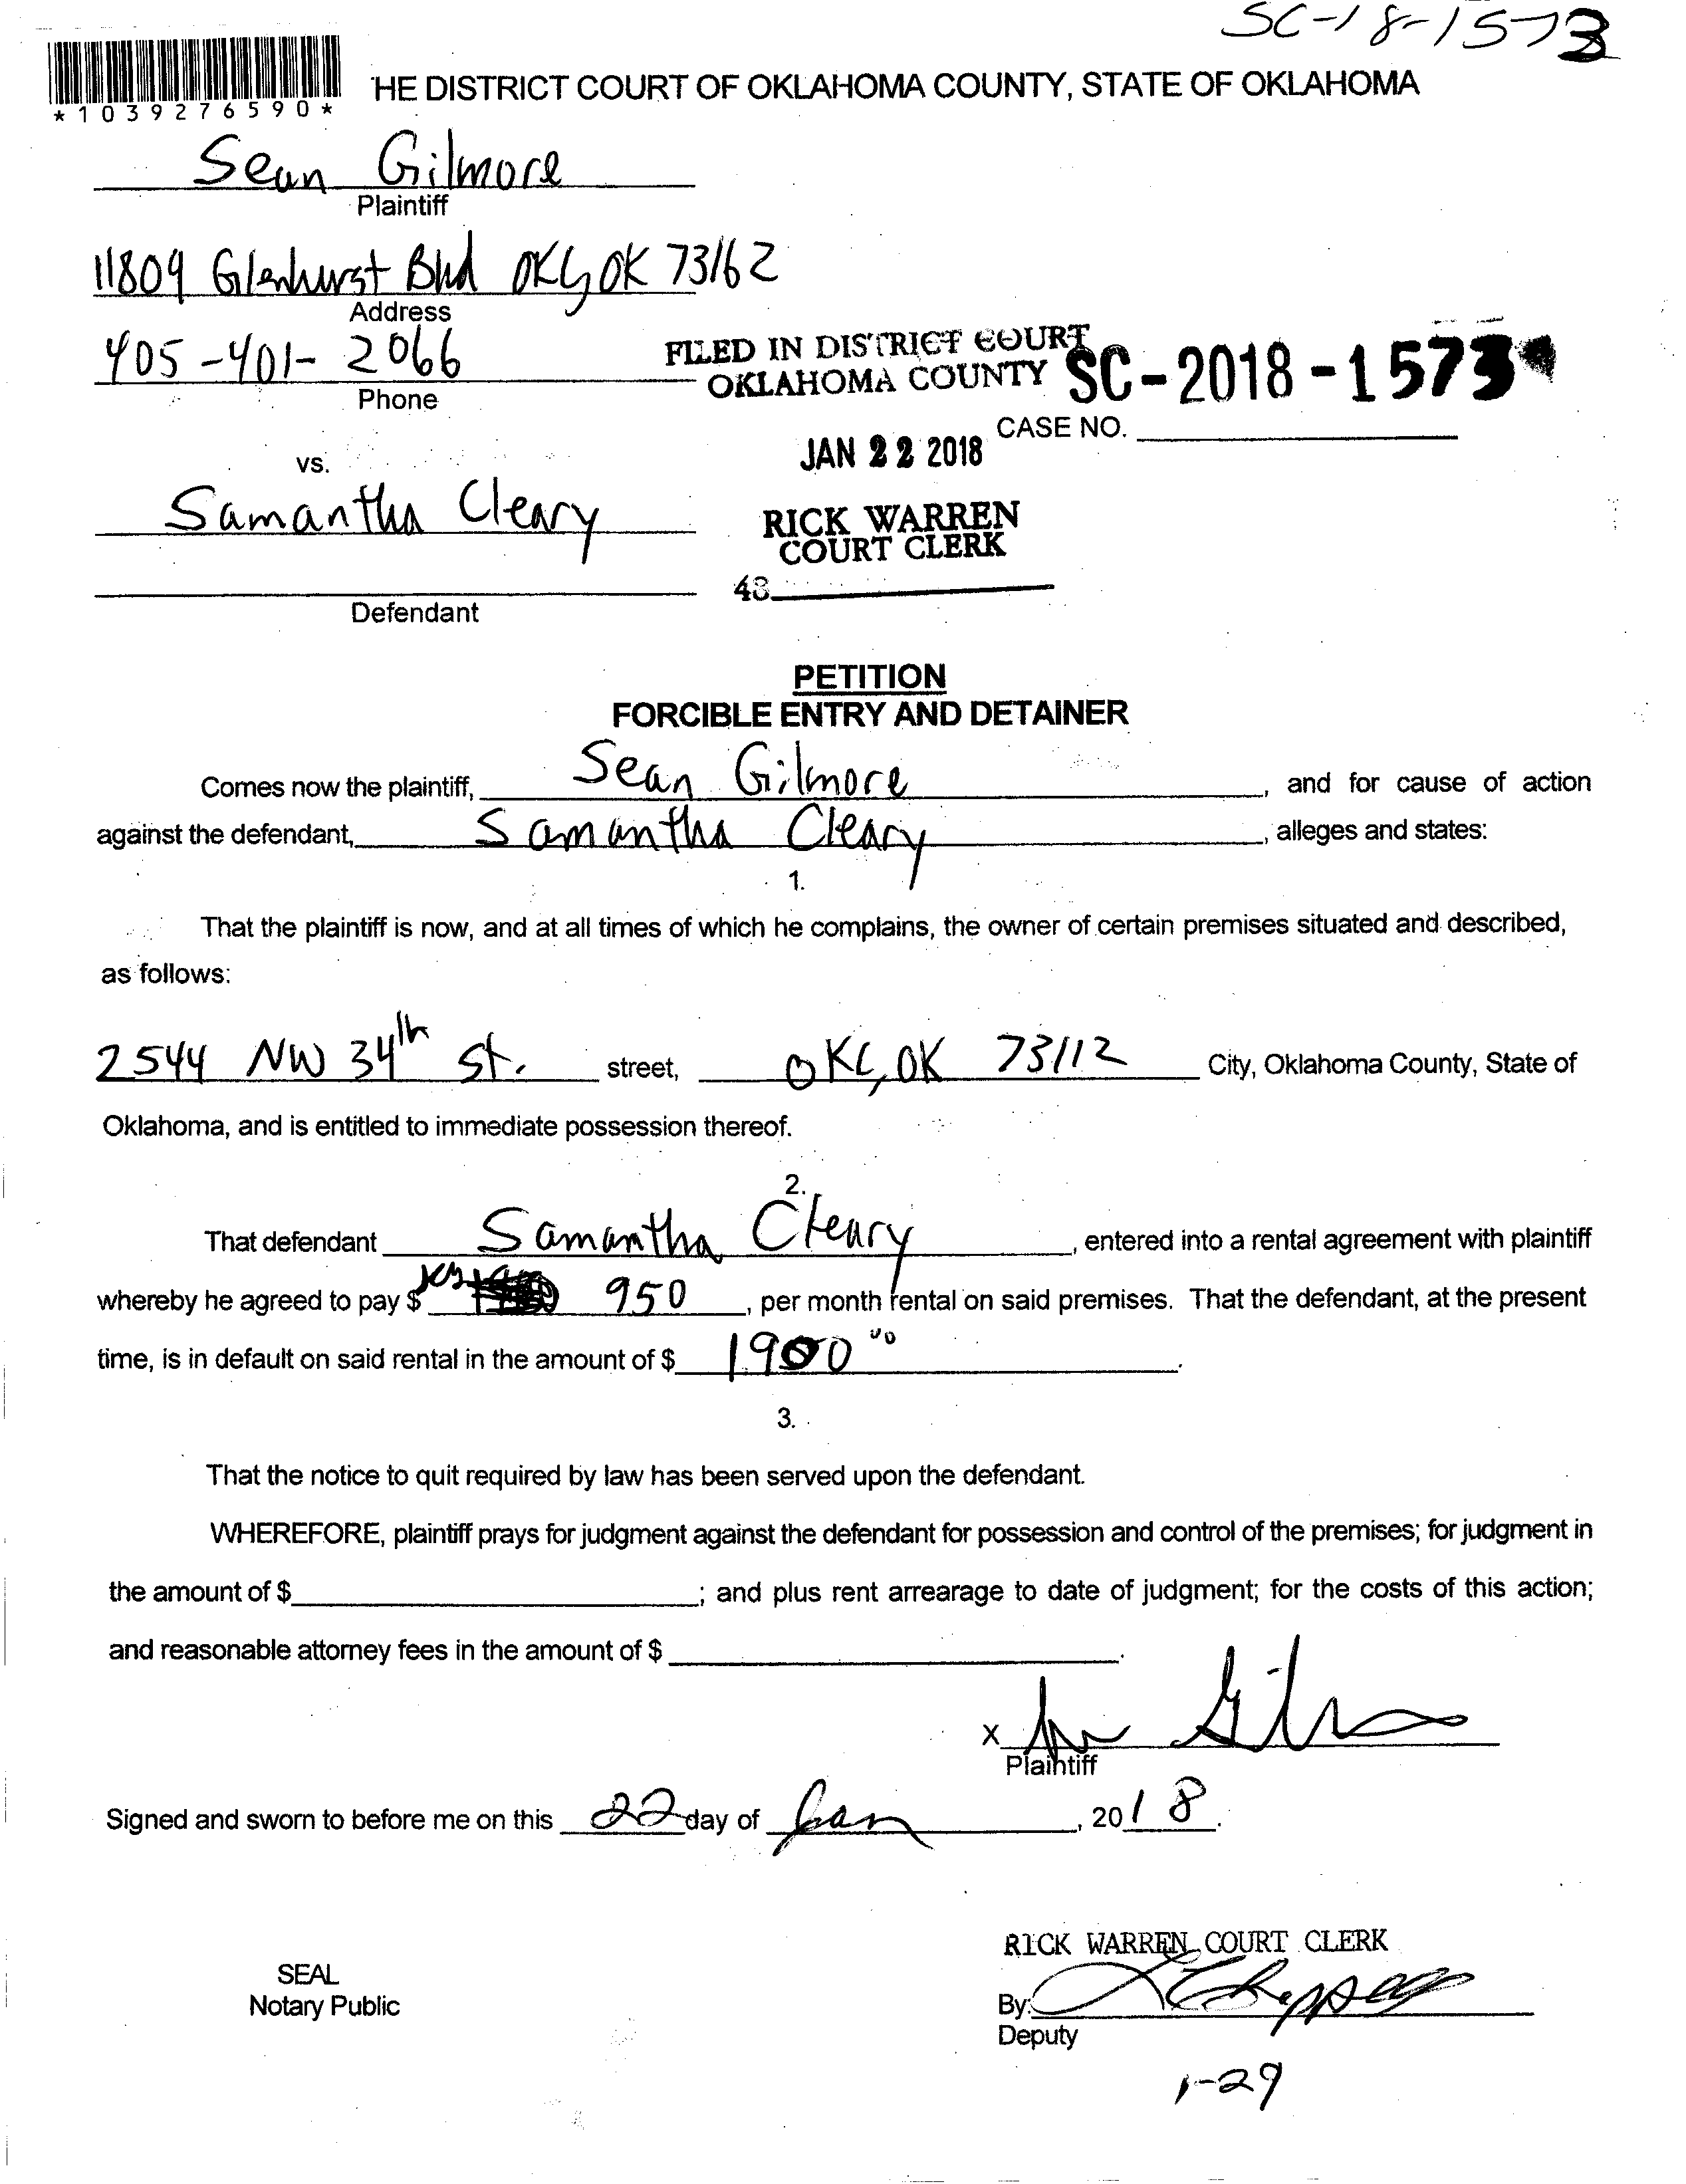 SC-18-1573
*1039276590*
HE DISTRICT COURT OF OKLAHOMA COUNTY, STATE OF OKLAHOMA
Sean Gilmore
Plaintiff
11809 Glenhurst Blvd OKC, OK 73162
Address
405-401-2066
Phone
FILED IN DISTRICT COURT
OKLAHOMA COUNTY
SC-2018-1573
CASE NO.
JAN 22 2018
vs.
Samantha Cleary
RICK WARREN
COURT CLERK
48
Defendant
PETITION
FORCIBLE ENTRY AND DETAINER
Comes now the plaintiff, Sean Gilmore, and for cause of action
against the defendant, Samantha Cleary, alleges and states:
1.
That the plaintiff is now, and at all times of which he complains, the owner of certain premises situated and described,
as follows:
2544 NW 34th St. street, OKC, OK 73112 City, Oklahoma County, State of
Oklahoma, and is entitled to immediate possession thereof.
2.
That defendant Samantha Cleary, entered into a rental agreement with plaintiff
whereby he agreed to pay $ 950, per month rental on said premises. That the defendant, at the present
time, is in default on said rental in the amount of $ 1900 00.
3.
That the notice to quit required by law has been served upon the defendant.
WHEREFORE, plaintiff prays for judgment against the defendant for possession and control of the premises; for judgment in
the amount of $ ; and plus rent arrearage to date of judgment; for the costs of this action;
and reasonable attorney fees in the amount of $ .
X
Plaintiff
Signed and sworn to before me on this 22 day of Jan, 2018.
RICK WARREN COURT CLERK
SEAL
Notary Public
By:
Deputy
1-29